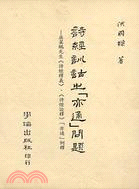 洪國樑 著
詩經訓詁之「亦通」問題
—屈翼鵬先生《詩經釋義》、《詩經詮釋》「亦通」例釋
學海出版社印行